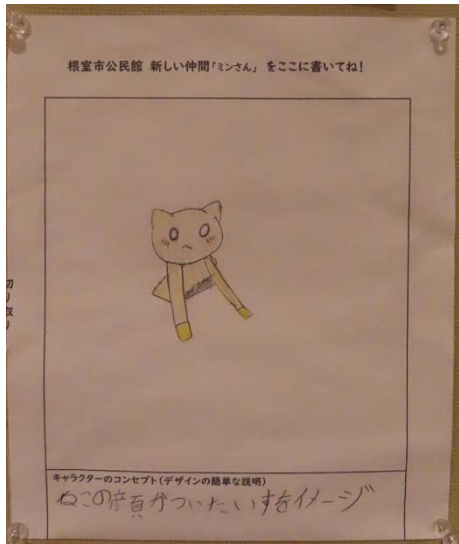 根室市公民館 新しい仲間「ミンさん」 をここに書いてね!
切り取り
キャラクターのコンセプト(デザインの簡単な説明)
ねこの顔がついたいすをイメージ